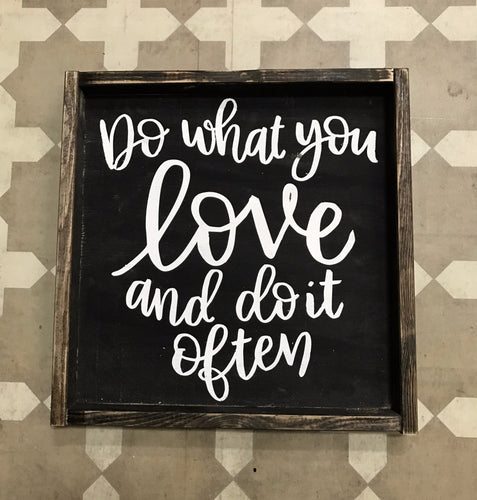 Do what you
love
and do it
often